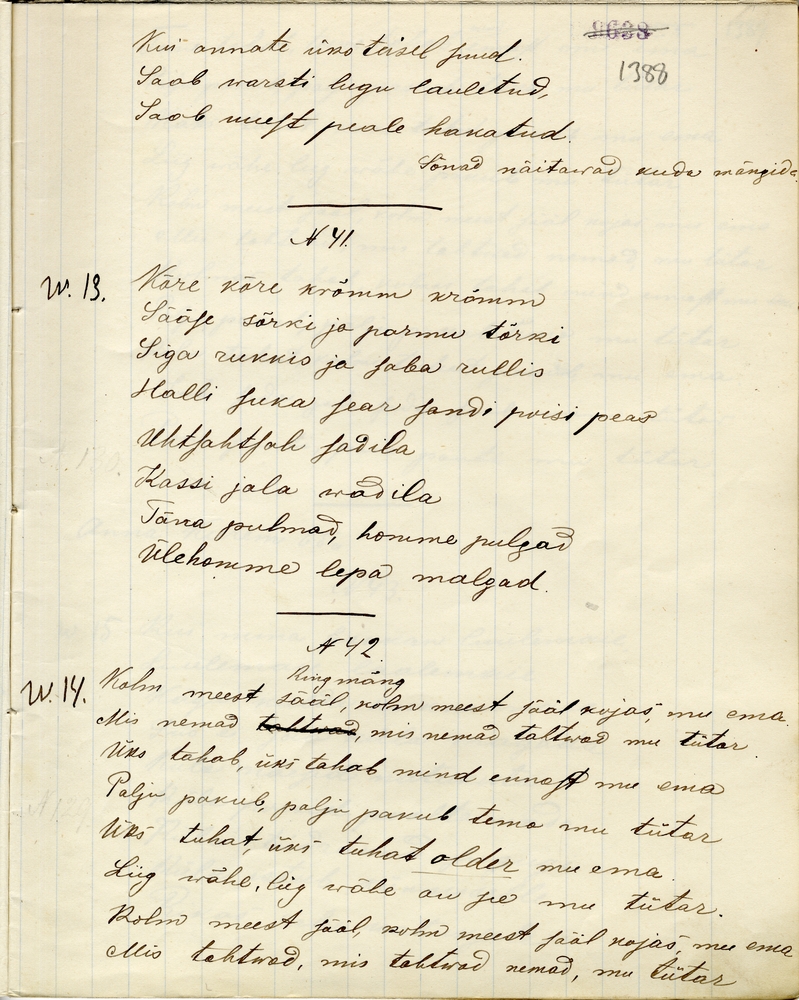 9638
1388
Kui annate üksteisel suud.
Saab warsti lugu lauletud,
Saab uuest peale hakatud.
Sõnad näitawad kuda mängid
N 41.
W. 13. Kõre kõre krõmm krõmm
Sääse sõrki ja parmu tõrki
Siga rukkis ja saba rullis
Halli suka sear sandi poisi peas
Uhtsahtsah sadila
Kassi jala wadila
Täna pulmad, homme pulgad
Ülehomme lepa malgad.
N 42.
Ring mäng
W. 14. Kolm meest sääl, kolm meest sääl kojas, mu ema.
Mis nemad tahtwad, mis nemad tahtwad mu tütar
Üks tahab, üks tahab mind ennast mu ema
Palju pakub, palju pakub tema mu tütar
Üks tuhat, üks tuhat older mu ema
Liig wähe, liig wähe on se mu tütar.
Kolm meest sääl, kolm meest sääl kojas, mu ema
Mis tahtwad, mis tahtwad nemad, mu tütar